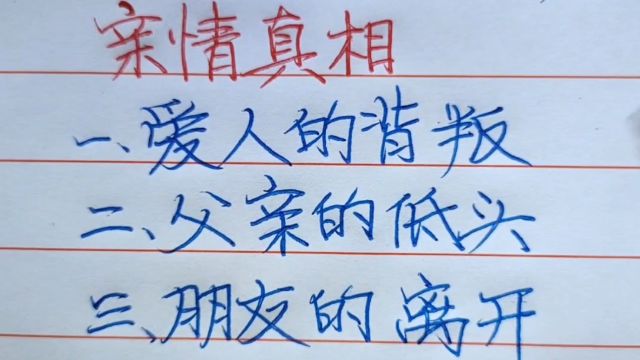 亲情真相
一、爱人的背叛
二、父亲的低头
三、朋友的离开